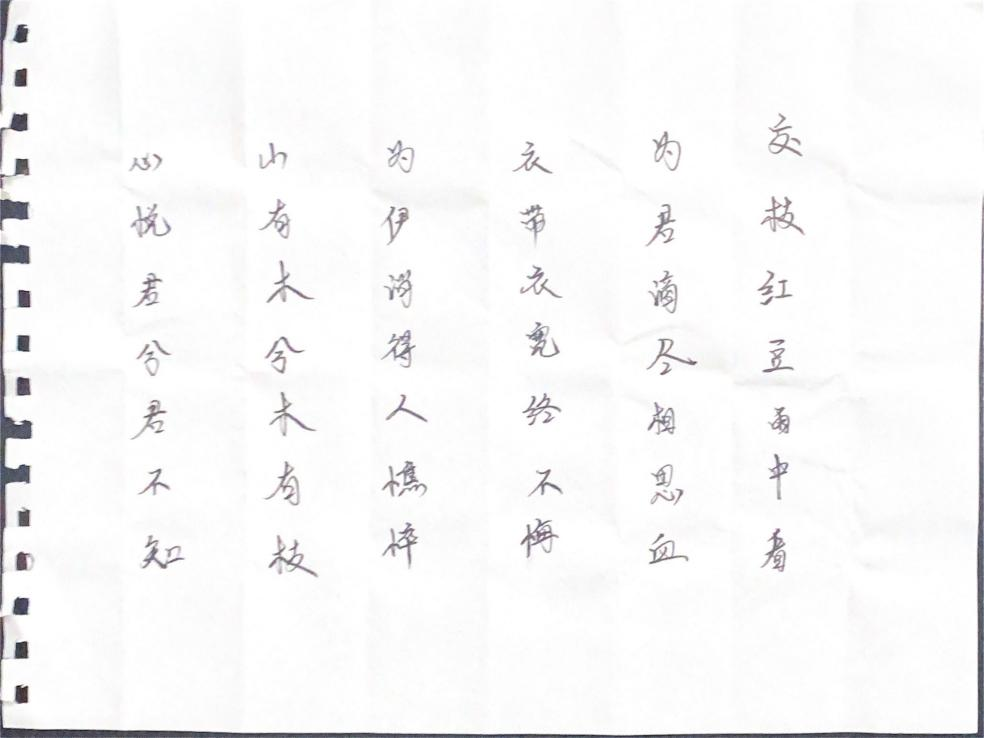 交枝红豆雨中看
为君滴尽相思血
衣带衣宽终不悔
为伊消得人憔悴
山有木兮木有枝
心悦君兮君不知